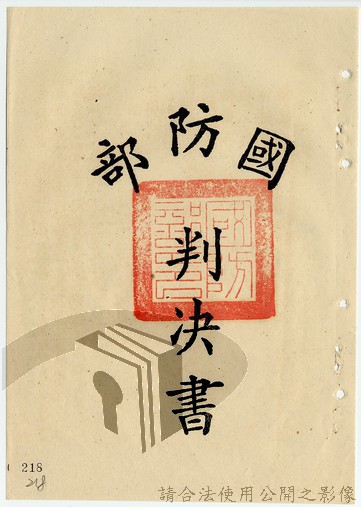 國防部
判決書
218
218
請合法使用公開之影像